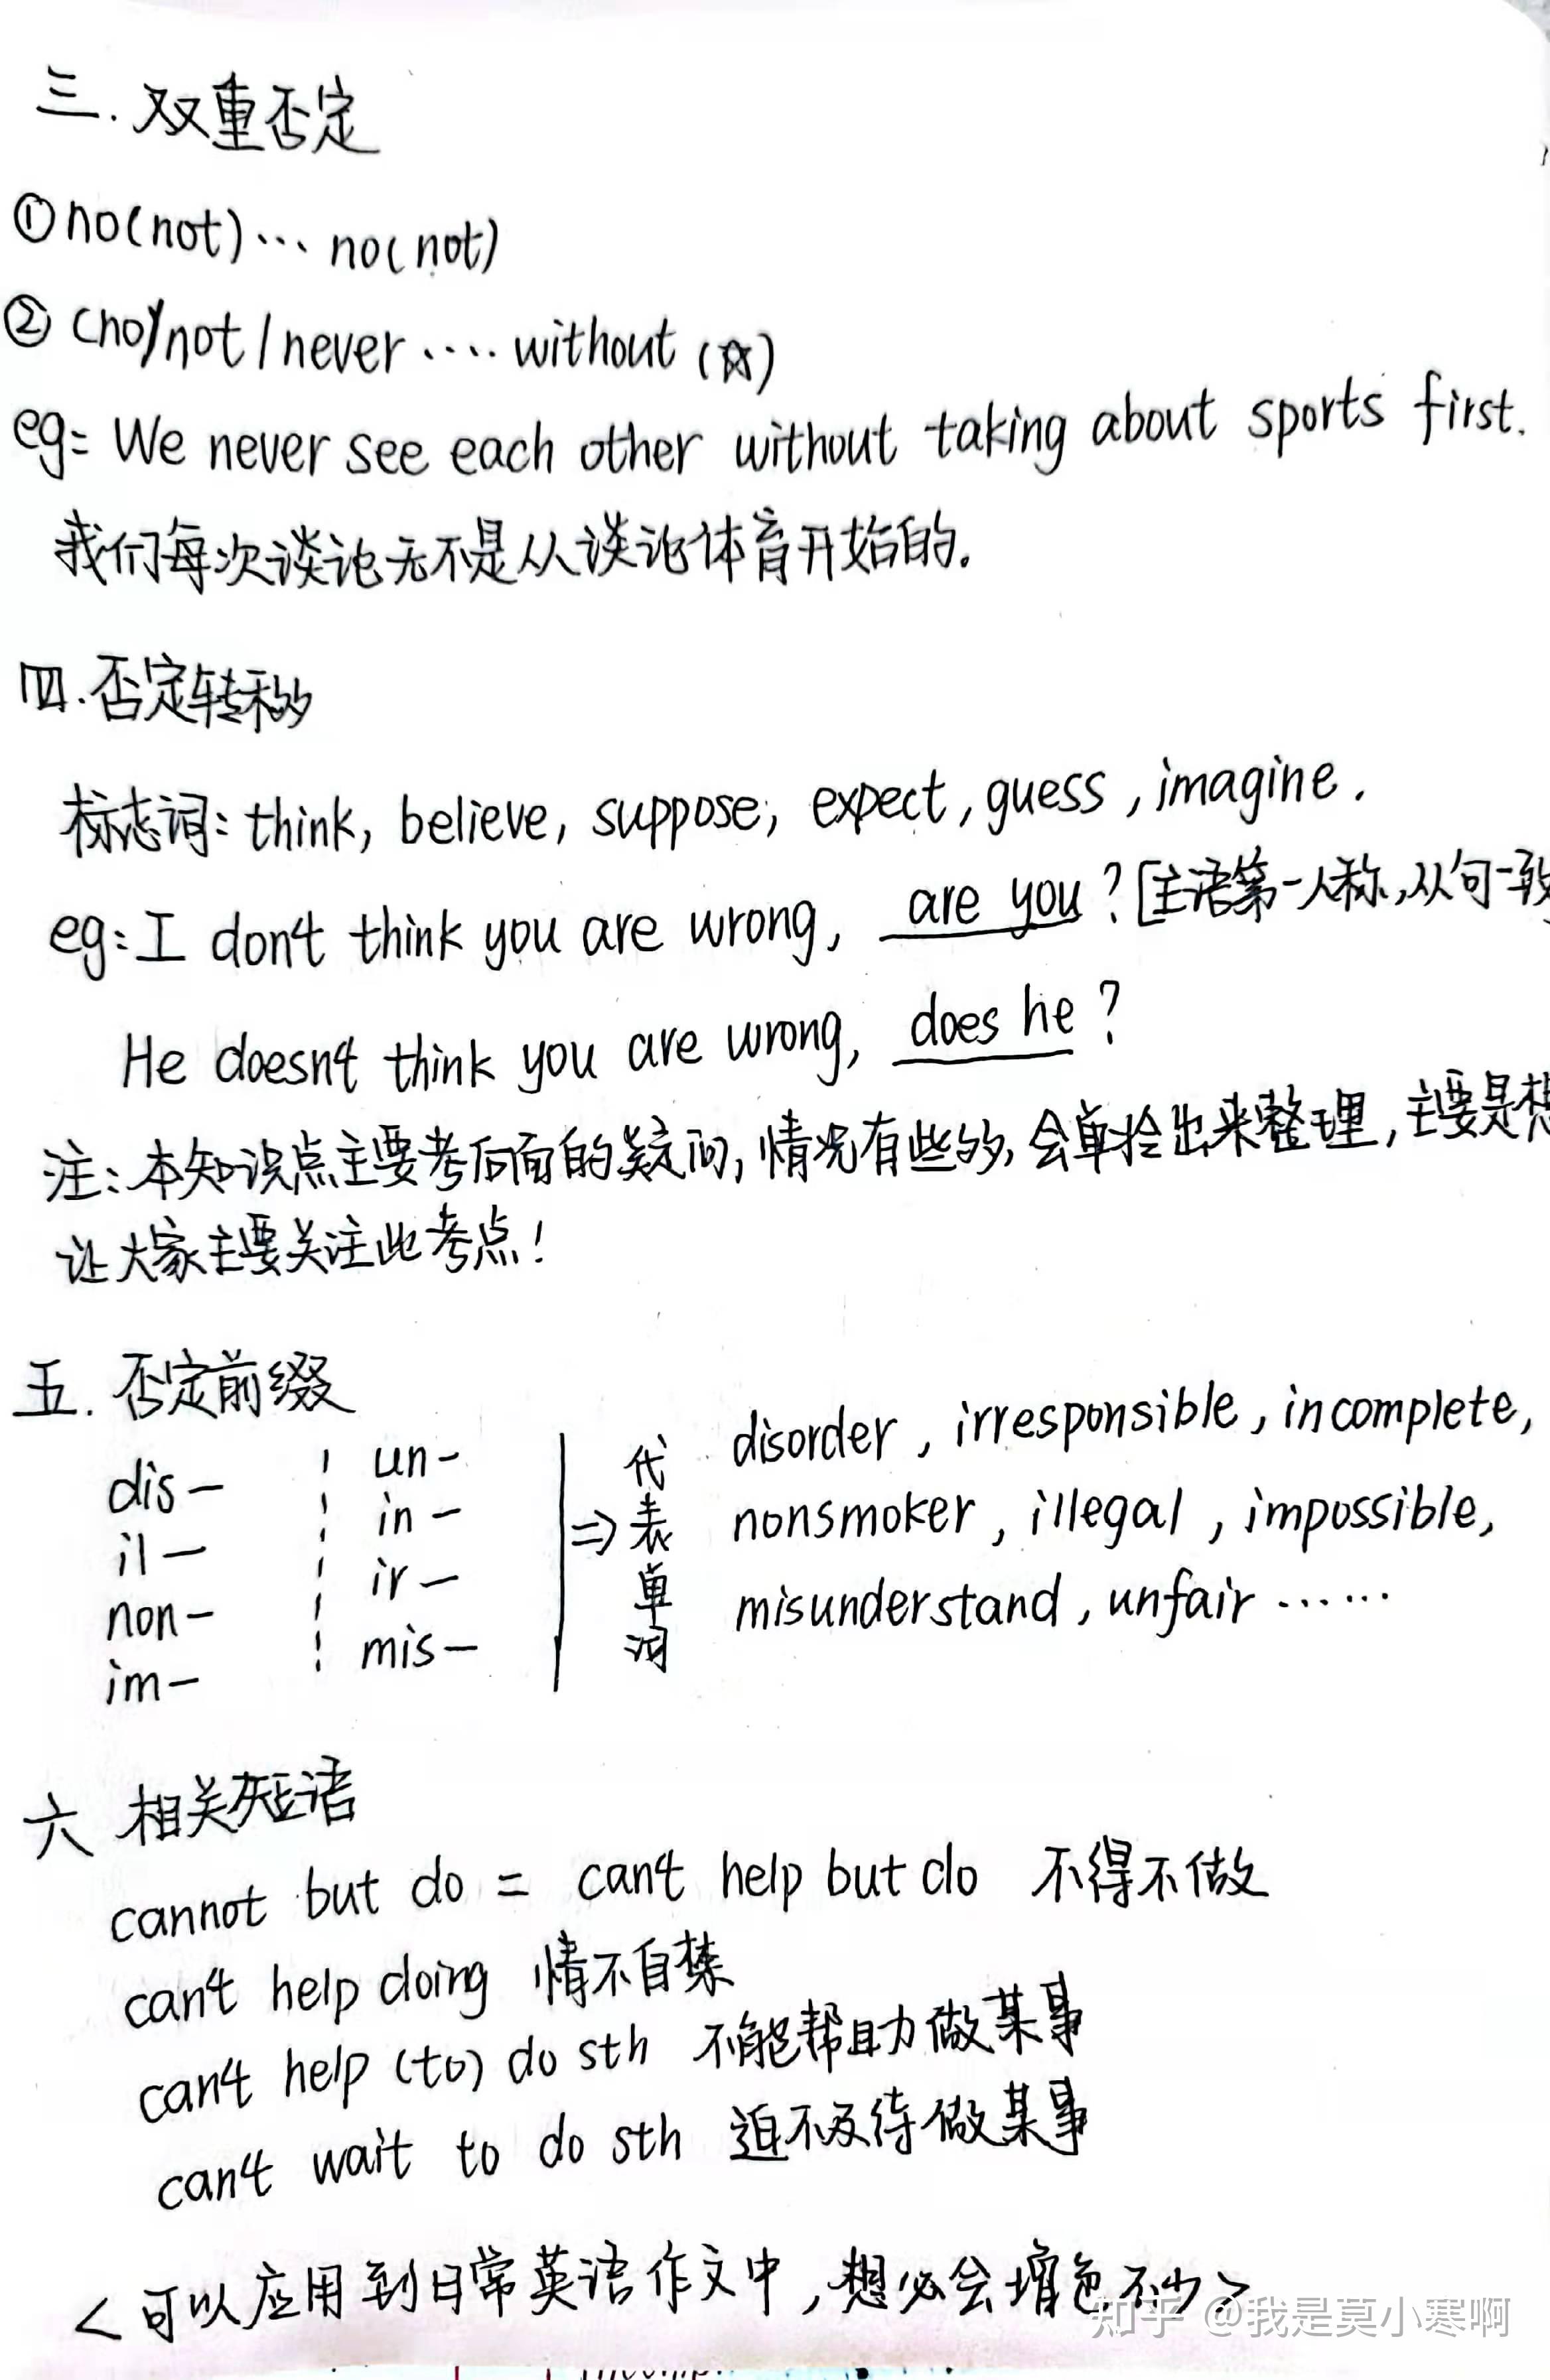 三.双重否定
①no(not)… no(not)
②(no)/not/never …. without (☆)
eg: We never see each other without taking about sports first.
我们每次谈论无不是从谈论体育开始的.
四.否定转移
标志词: think, believe, suppose, expect, guess, imagine.
eg: I don't think you are wrong, are you ? [主语第一人称,从句一致
He doesn't think you are wrong, does he ?
注:本知识点主要考后面的疑问,情况有些多,会单拎出来整理,主要是想
让大家主要关注此考点!
五.否定前缀
dis- un-
il- in-
non- ir-
im- mis-
⇒代表单词
disorder, irresponsible, incomplete,
nonsmoker, illegal, impossible,
misunderstand, unfair ……
六 相关短语
cannot but do = can't help but do 不得不做
can't help doing 情不自禁
can't help (to) do sth 不能帮助做某事
can't wait to do sth 迫不及待做某事
<可以应用到日常英语作文中,想必会增色不少>
知乎 @我是莫小寒啊